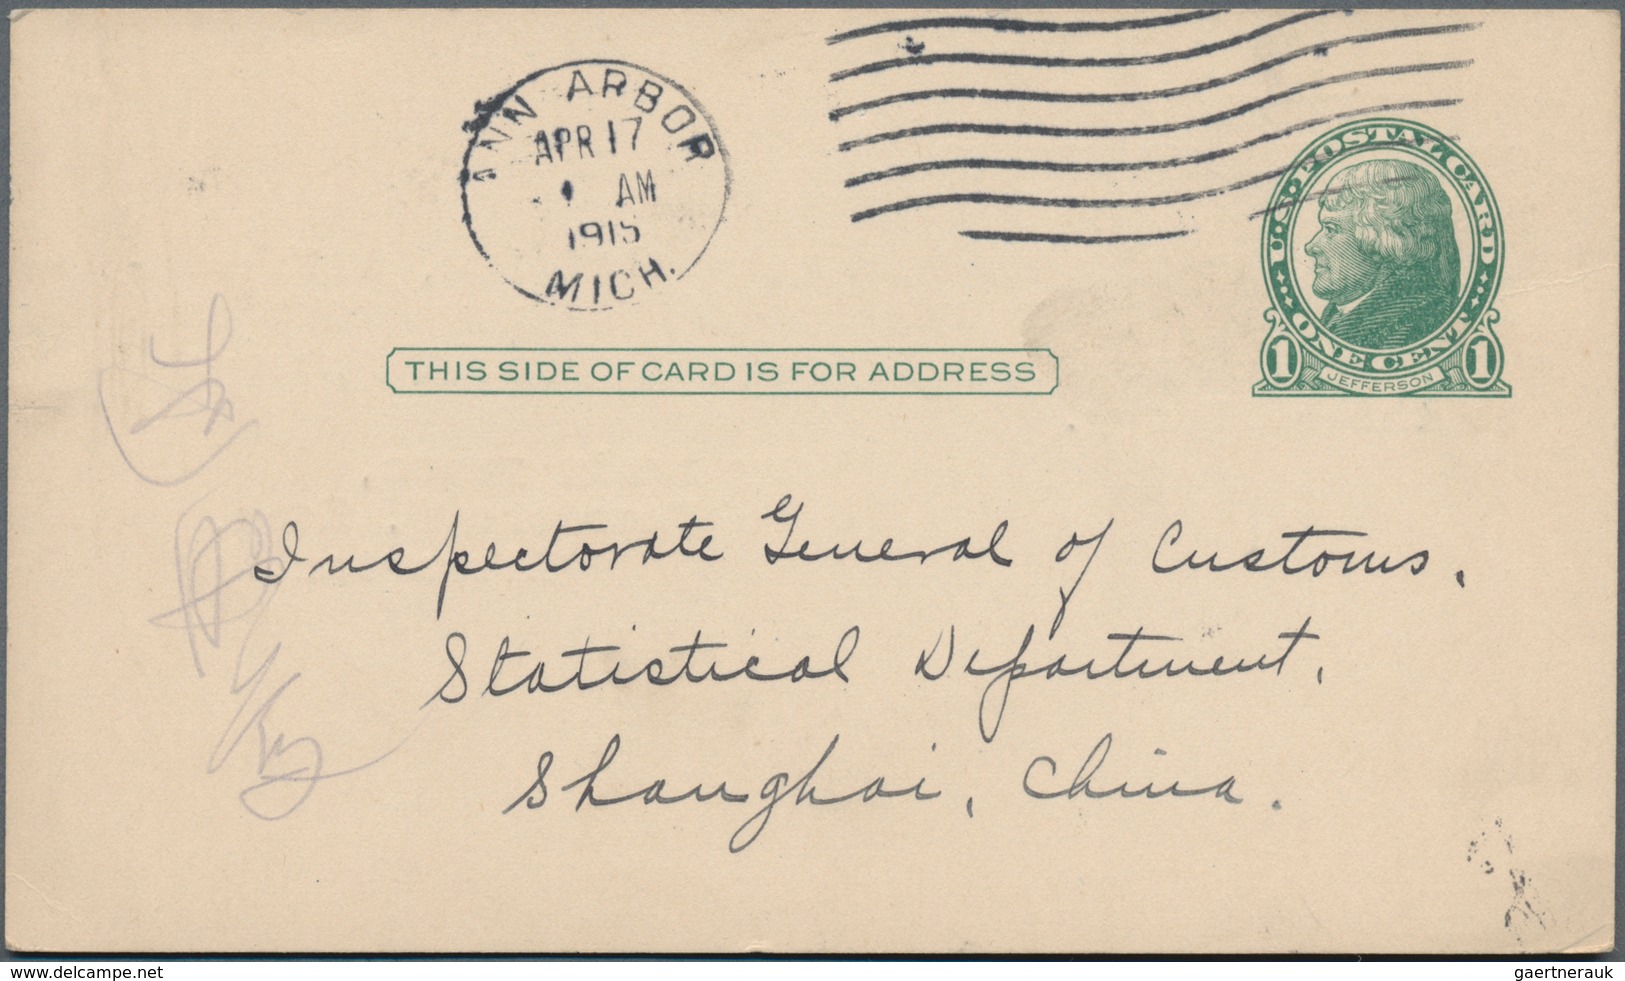 ANN ARBOR
APR 17
AM
1915
MICH.
U.S. POSTAL CARD
ONE CENT
1 JEFFERSON 1
THIS SIDE OF CARD IS FOR ADDRESS
Inspectorate General of Customs.
Statistical Department,
Shanghai, China.
www.delcampe.net
gaertnerauk